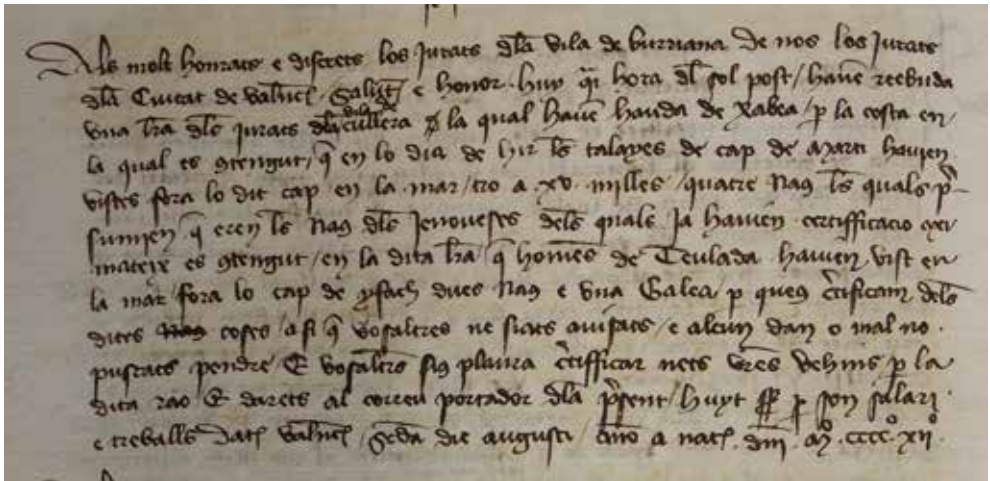 Als molt honrats e discrets los Jurats dla vila de burriana De nos los Jurats
dla Ciutat de valnc / Saluts e honor. huy qsi hora dl sol post / havem reebuda
una lra dls jurats dla vila de cullera la qual havem hauda de Xabea / p la costa en
la qual es 9tengut / q en lo dia de hir les talayes de cap de Marti havien
vistes fora lo dit cap en la mar / tro a .xv. milles / quatre naus les quals p̃-
sumien q eren les naus dls Jenoveses dels quals Ja havien certifficacio axi
mateix es 9tengut / en la dita lra q homens de Teulada havien vist en
la mar fora lo cap de yfach dues naus e una Galea / p queus c̃tificam dels
dites coses / asi q vosaltres ne siats avisats / e alcun dan o mal no
puscats pendre / E vosaltres sius plaura c̃tifficar nets vr̃es vehins p la
dita rao E darets al correu portador dla p̃sent / huyt p son salari
e treballs Dat valnc / Scda die augusti / anno a nat dni .Mo. cccco. xiio.